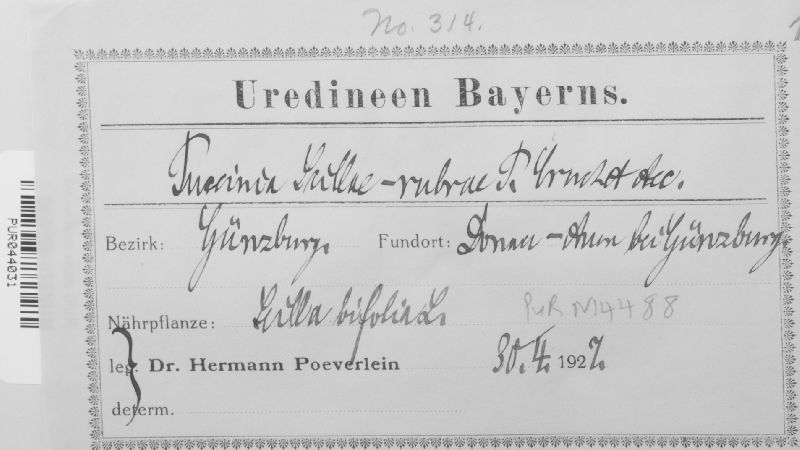 No. 314.
Uredineen Bayerns.
Puccinia Scillae-rubrae P. Cruchet Aec.
Bezirk: Günzburg. Fundort: Donau-Auen bei Günzburg.
Nährpflanze: Scilla bifolia L. PUR N14488
leg. Dr. Hermann Poeverlein 30.4.1927.
determ.
PUR044031